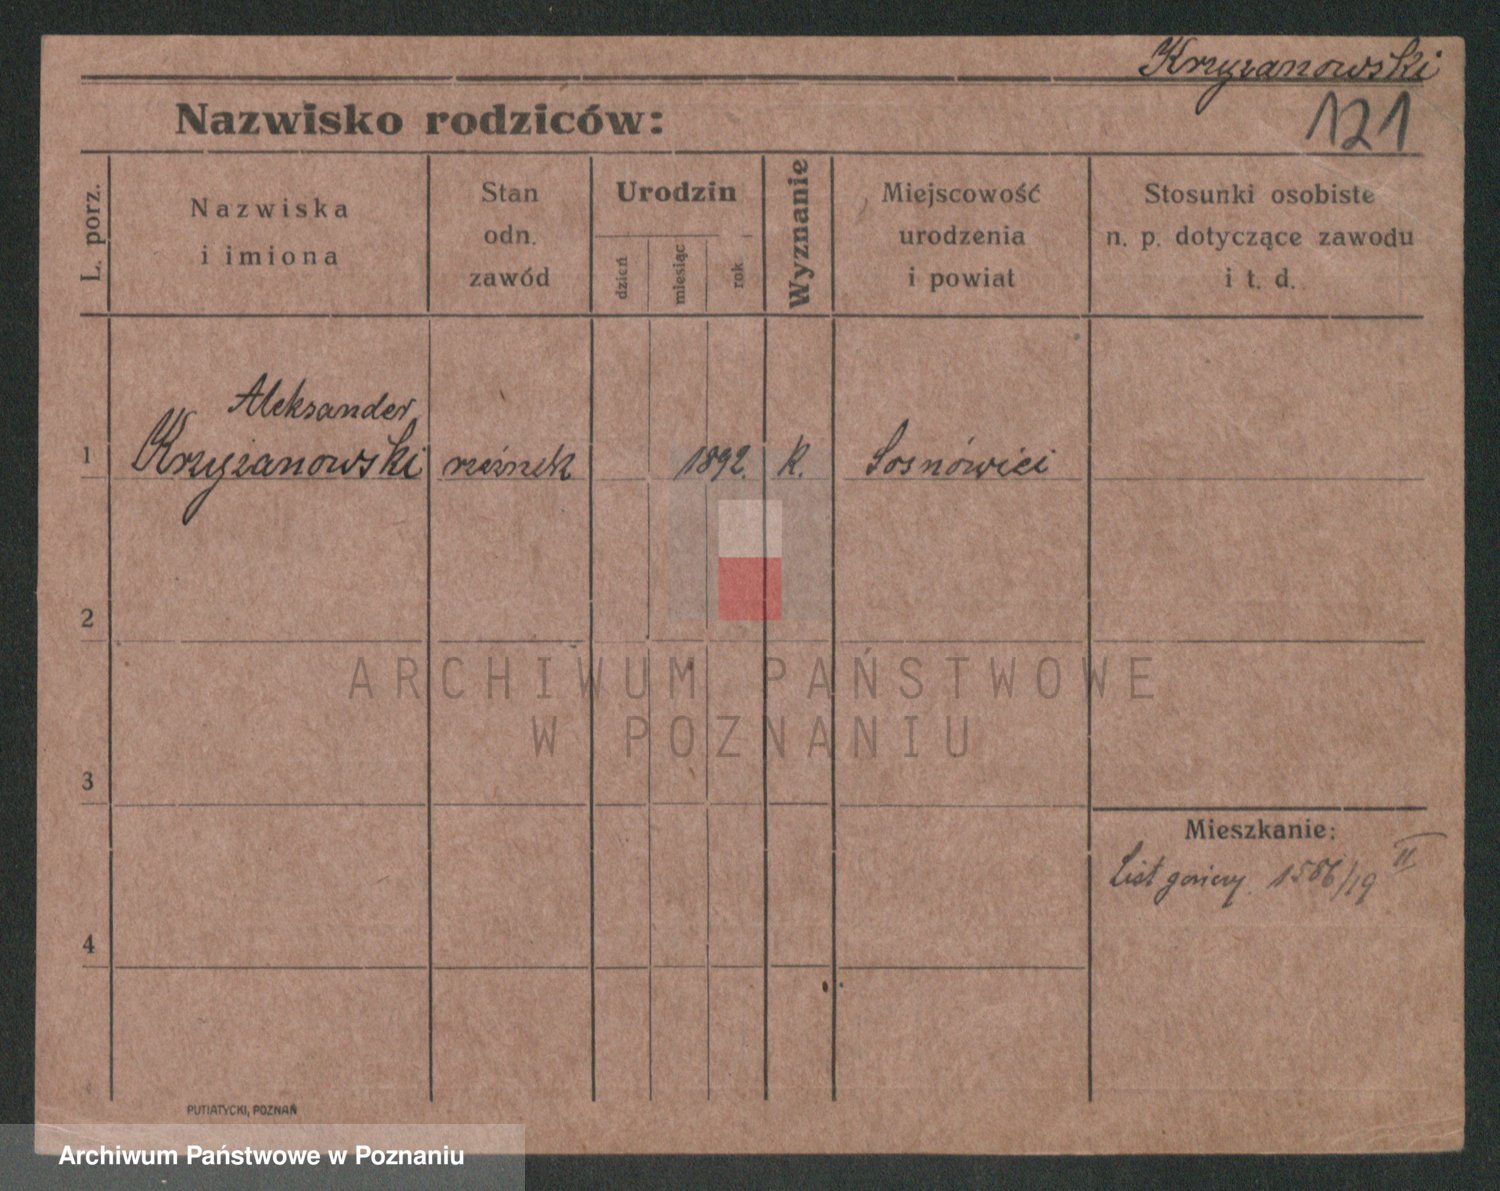 Krzyżanowski
121
Nazwisko rodziców:
L. porz.
Nazwiska
i imiona
Stan
odn.
zawód
Urodzin
dzień
miesiąc
rok
Wyznanie
Miejscowość
urodzenia
i powiat
Stosunki osobiste
n. p. dotyczące zawodu
i t. d.
Aleksander
1 Krzyżanowski rzeźnik 1892. K. Sosnówiec
2
ARCHIWUM PAŃSTWOWE
W POZNANIU
3
Mieszkanie:
List gończy 1586/19 II
4
PUTIATYCKI, POZNAŃ
Archiwum Państwowe w Poznaniu